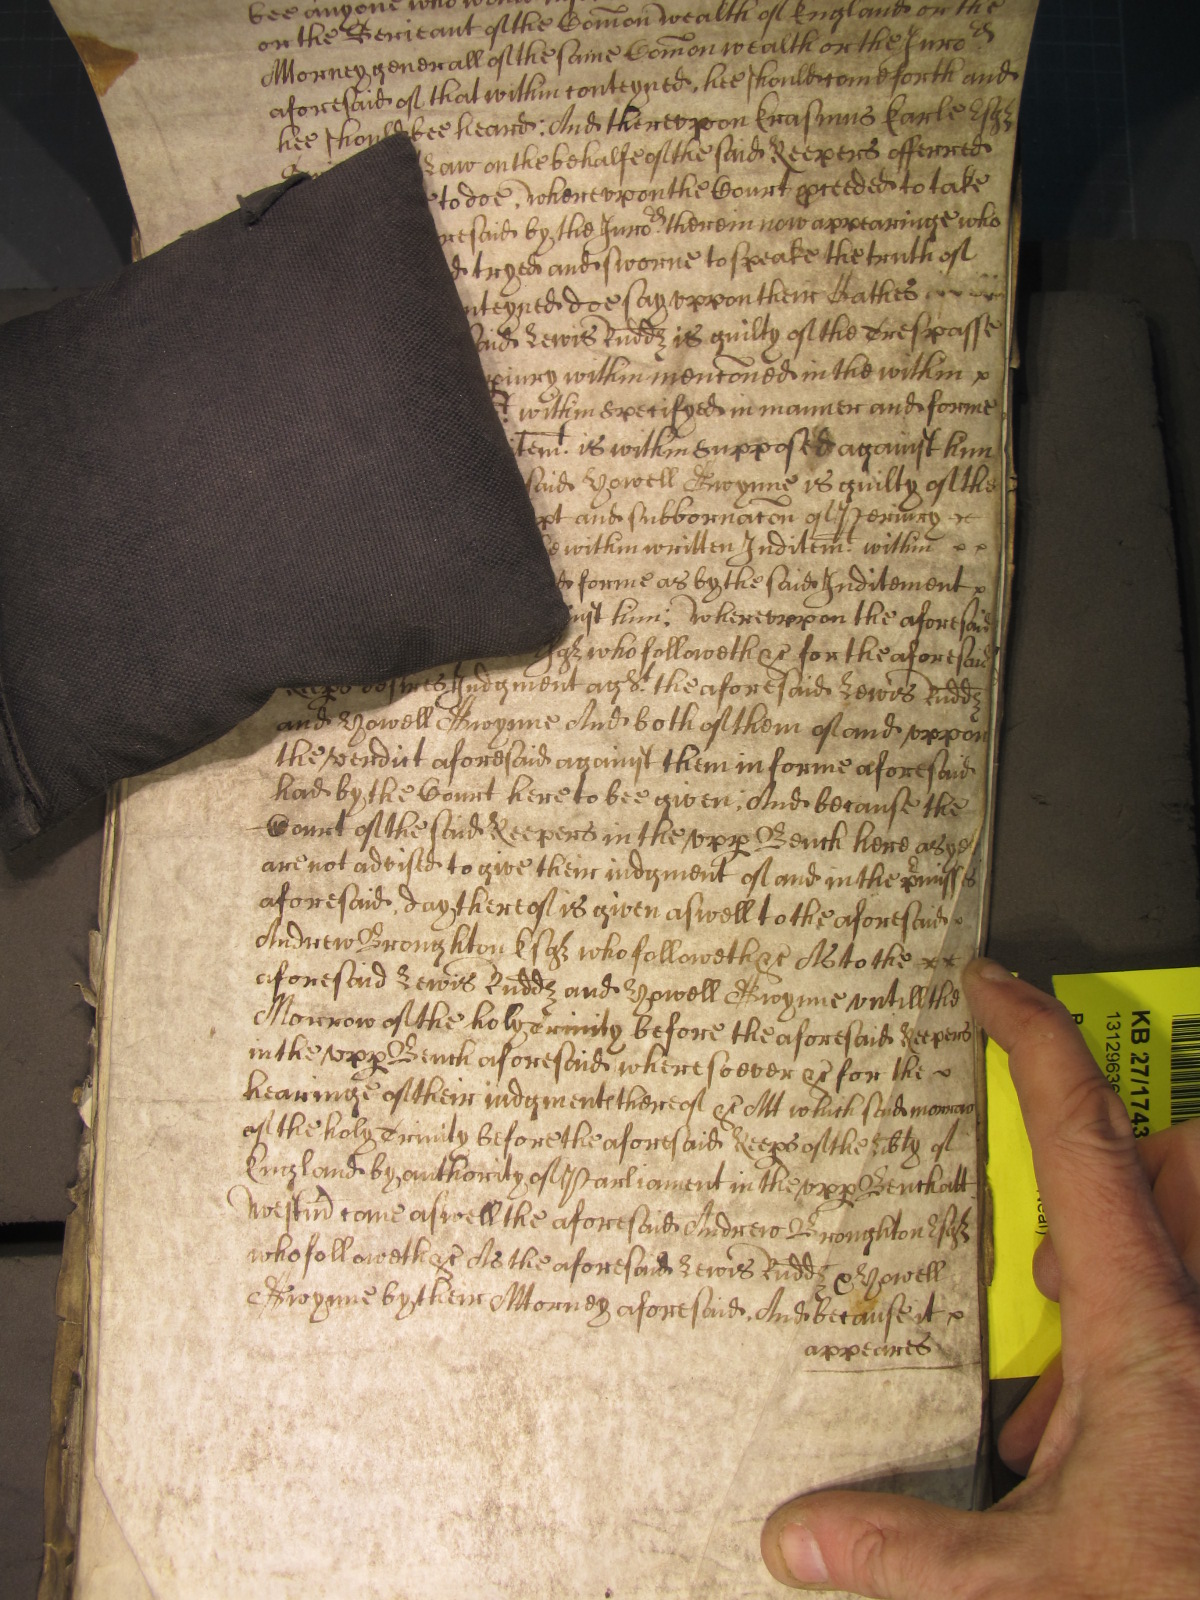 bee anyone who would
or the Serieant of the Com̄on wealth of England or the
Attorney generall of the same Com̄on wealth or the Juro.rs
aforesaid of that within conteyned, hee should come forth and
hee should bee heard; And therevpon Erasmus Earle Esqr
Law on the behalfe of the said Keepers offerred
to doe, wherevpon the Court p̱ceeded to take
resaid by the Juro.rs therein now appearinge who
d tryed and sworne to speake the truth of
nteyned doe say vppon their Oathes
said Lewis Rudd is guilty of the Trespasse
piury within menc̄oned in the within x
within specifyed in manner and forme
item.t is within supposed against him
said Howell Gwynne is guilty of the
pt and subbornac̄on of Periury x
e within written Inditem.t within x x
d forme as by the said Inditement x
inst him; wherevppon the aforesaid
Esqr who followeth &c for the aforesaid
Keeps desires Judgment agst the aforesaid Lewis Rudd
and Howell Gwynne And both of them of and vppon
the verdict aforesaid against them in forme aforesaid
had by the Court here to bee given; And because the
Court of the said Keepers in the vpp Bench here as yet
are not advised to give their iudgment of and in the p̄misses
aforesaid, day thereof is given aswell to the aforesaid
Andrew Broughton Esqr who followeth &c As to the x x
aforesaid Lewis Rudd and Howell Gwynne vntill the
Morrow of the holy Trinity before the aforesaid Keepers
in the vpp Bench aforesaid wheresoever &c for the
hearinge of their iudgment thereof &c Att which said morrow
of the holy Trinity before the aforesaid Keeps of the libty of
England by authority of Parliament in the vpp Bench att
Westm̄ come aswell the aforesaid Andrew Broughton Esqr
who followeth &c As the aforesaid Lewis Rudd & Howell
Gwynne by their Attorney aforesaid, And because it x
appeares
KB 27/1743